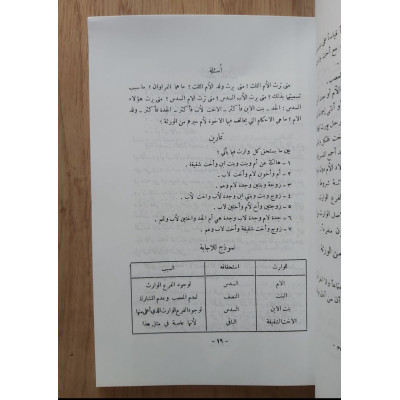 أسئلة
متى ترث الأم الثلث؟ متى يرث ولد الأم الثلث؟ ما هما الغراوان؟ ما سبب
تسميتها بذلك؟ متى يرث الأب السدس؟ متى ترث الأم السدس؟ متى يرث هؤلاء
السدس: الجد ـ بنت الابن وأكثر ـ الاخت لأب فأكثر ـ الجدة فأكثر ـ ولد
الأم؟ ما هي الأحكام التي يخالف فيها الاخوة لأم غيرهم من الورثة؟
تمارين
بين ما يستحق كل وارث فيما يأتي؟
١ ـ هالكة عن أم وبنت وبنت ابن وأخت شقيقة.
٢ ـ أم وأخوان لأم وأخت لأب.
٣ ـ زوجة وبنتين وجدة لأم وعم.
٤ ـ زوج وبنت وبنتي ابن وجدة لأب واخت لأب.
٥ ـ زوجتين وأخ لأم وأختين لأب وعم.
٦ ـ جدة لام وجدة لاب وجدة هي أم الجد واختين لأب وعم.
٧ ـ زوج وأخت شقيقة وأخت لأب وجدة لأم.
نموذج للإجابة
الوارث استحقاقه السبب
الام السدس لوجود الفرع الوارث
البنت النصف لعدم المعصب وعدم المشاركة
بنت الابن السدس لوجود الفرع الوارث الذي أعلى منها
الاخت الشقيقة الباقي لأنها عاصبة في مثل هذا
ـ ١٩ ـ